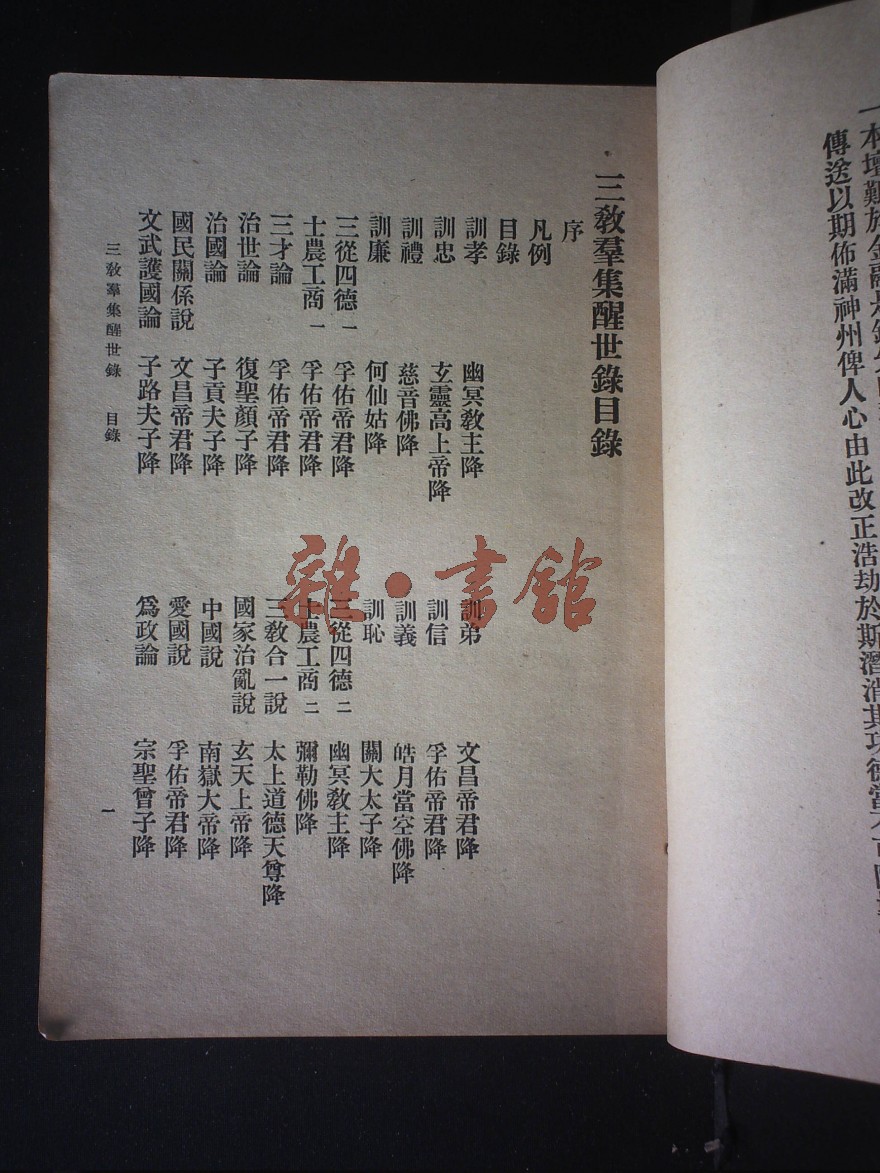 一本壇艱於金融
傳送以期佈滿神州俾人心由此改正浩劫於斯潛消其功德當不可
三敎羣集醒世錄目錄
序
凡例
目錄
訓孝 幽冥敎主降 訓弟 文昌帝君降
訓忠 玄靈高上帝降 訓信 孚佑帝君降
訓禮 慈音佛降 訓義 皓月當空佛降
訓廉 何仙姑降 訓恥 關大太子降
三從四德一 孚佑帝君降 三從四德二 幽冥敎主降
士農工商一 孚佑帝君降 士農工商二 彌勒佛降
三才論 孚佑帝君降 三敎合一說 太上道德天尊降
治世論 復聖顏子降 國家治亂說 玄天上帝降
治國論 子貢夫子降 中國說 南嶽大帝降
國民關係說 文昌帝君降 愛國說 孚佑帝君降
文武護國論 子路夫子降 爲政論 宗聖曾子降
三敎羣集醒世錄 目錄 一
雜·書館